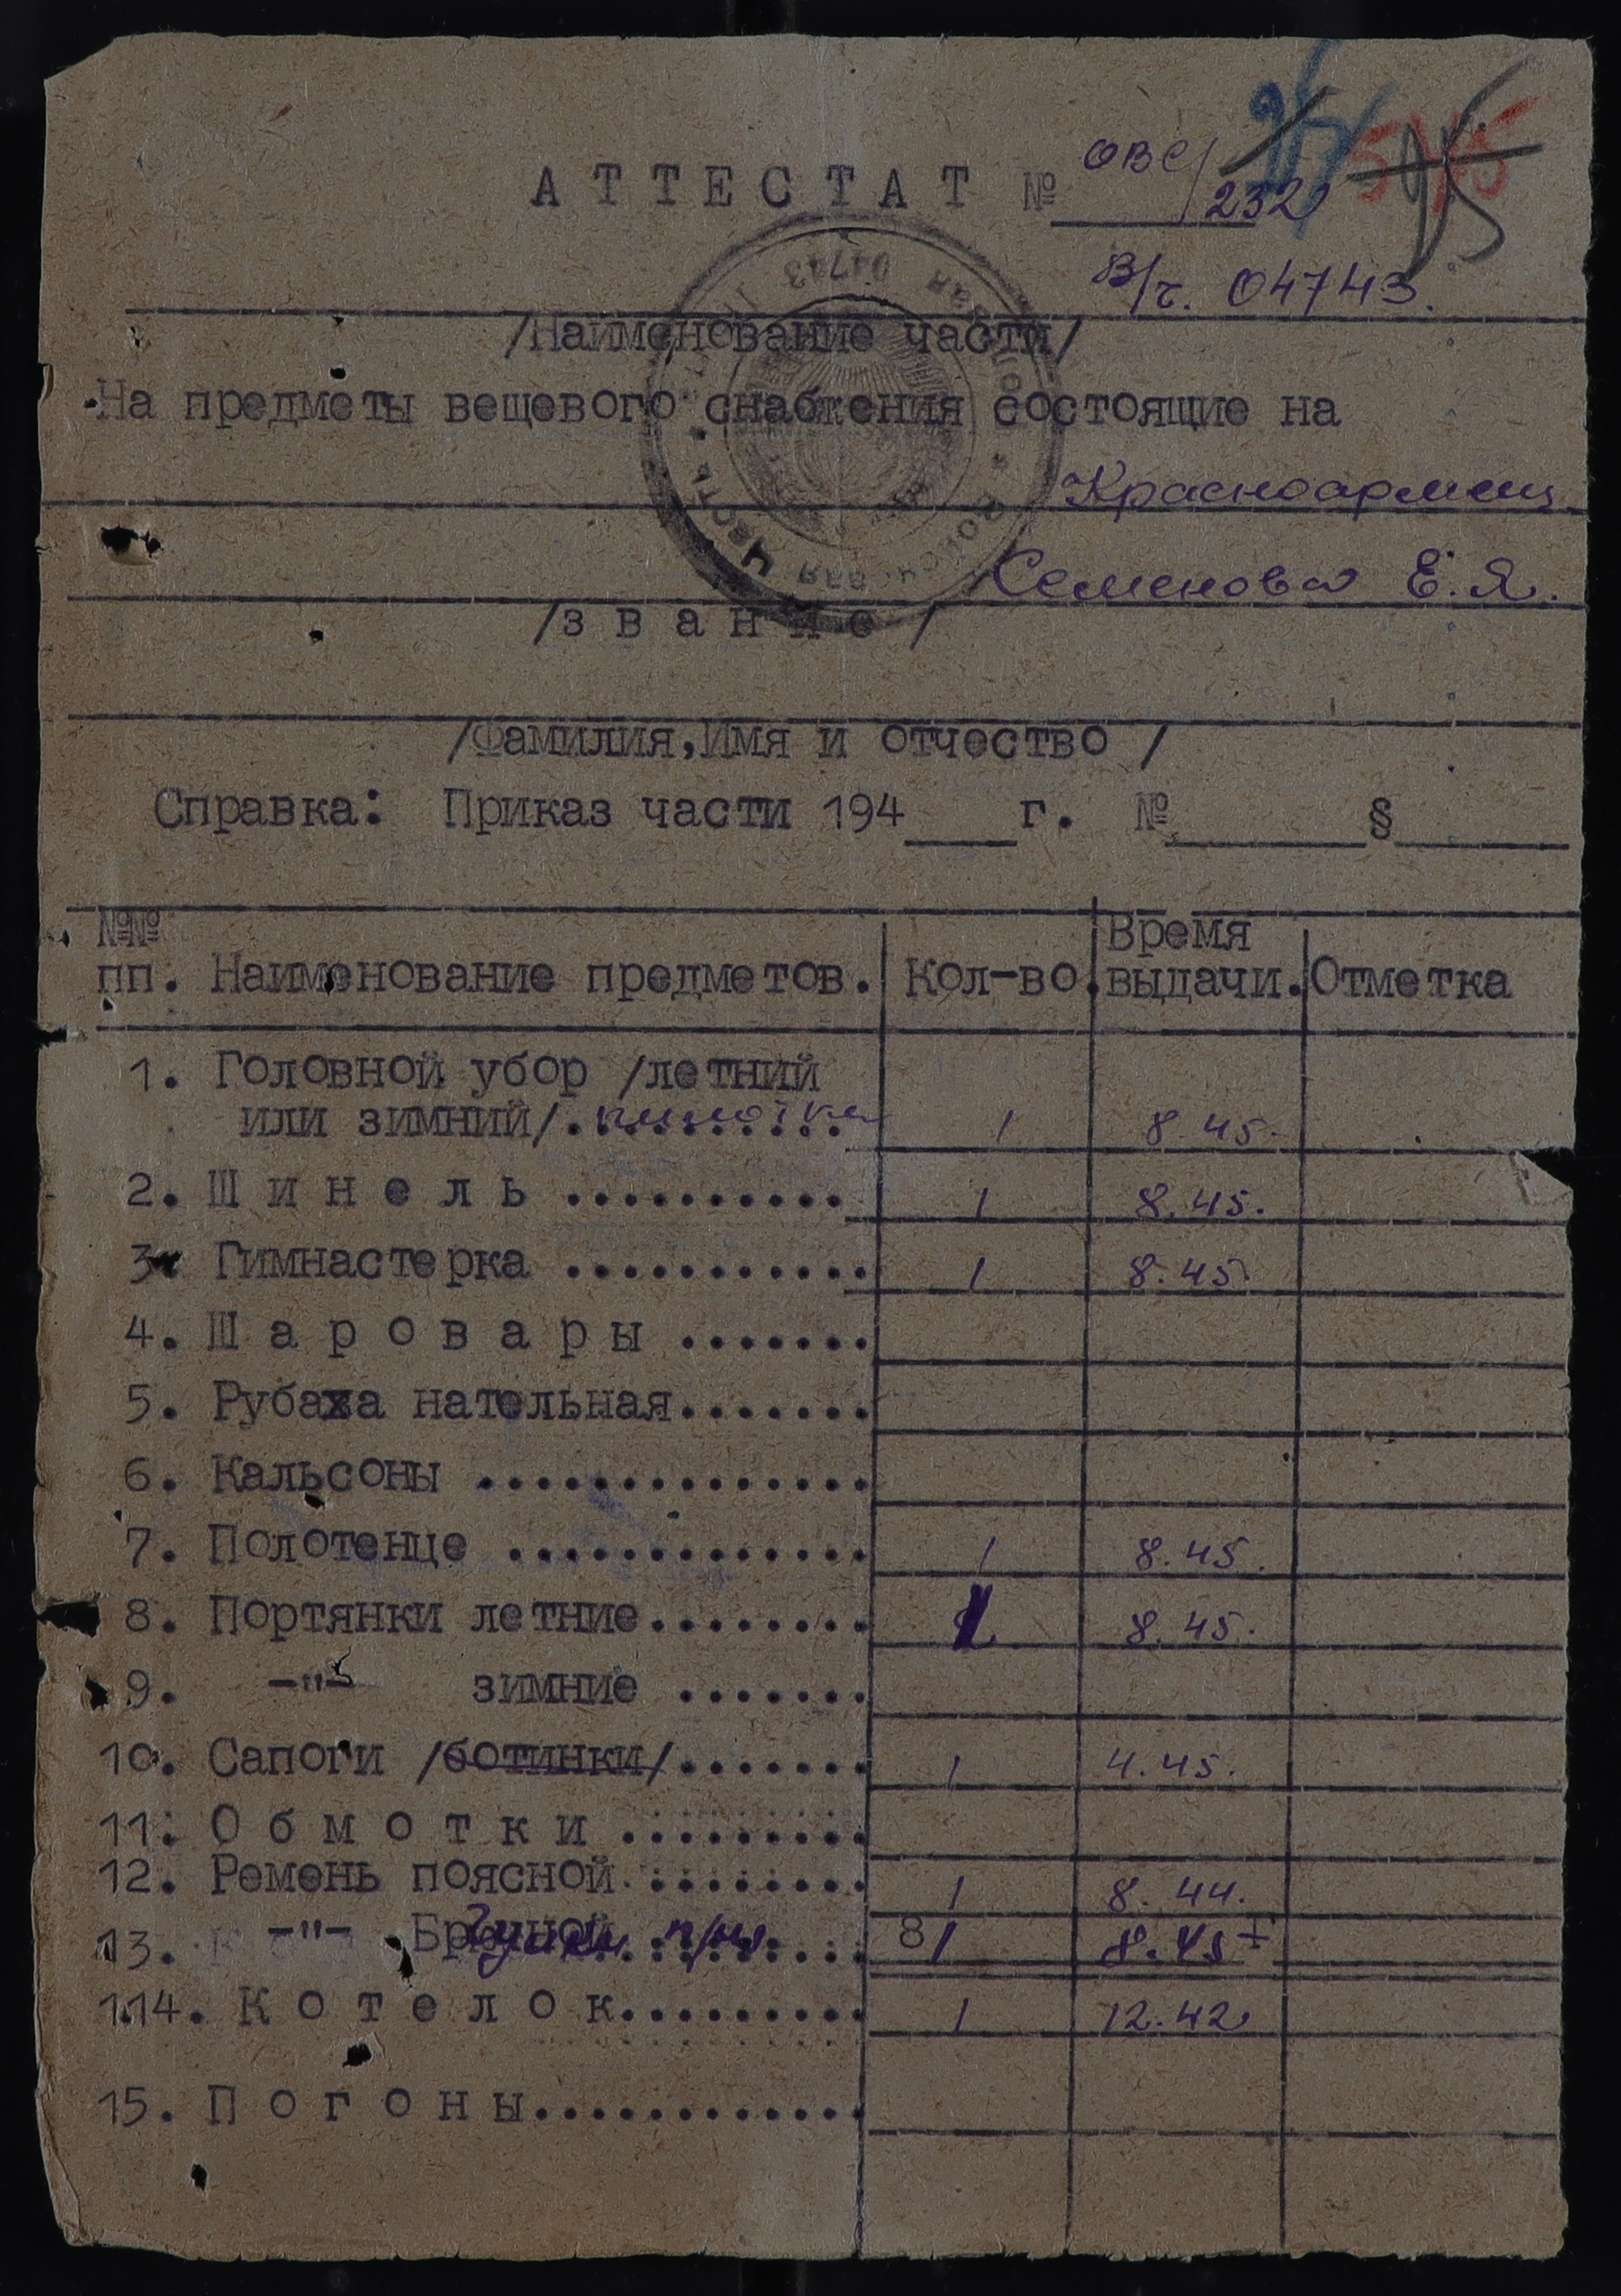 АТТЕСТАТ № ОВС/232
В/ч. 04743.
/Наименование части/
На предметы вещевого снабжения состоящие на
Красноармеец
Семенова Е.Я.
/звание/
/Фамилия, Имя и отчество /
Справка: Приказ части 194___г. №_______§______
№№ пп. Наименование предметов. Кол-во. Время выдачи. Отметка
1. Головной убор /летний
или зимний/. пилотка 1 8.45.
2. Шинель .......... 1 8.45.
3. Гимнастерка ........... 1 8.45.
4. Шаровары .......
5. Рубаха нательная.......
6. Кальсоны ..............
7. Полотенце ............. 1 8.45.
8. Портянки летние........ 8.45.
9. -"- зимние .......
10. Сапоги /ботинки/....... 1 4.45.
11. Обмотки .........
12. Ремень поясной ........ 1 8.44.
13. -"- Брючной п/ш 1 8.45
14. Котелок......... 1 12.42
15. Погоны............